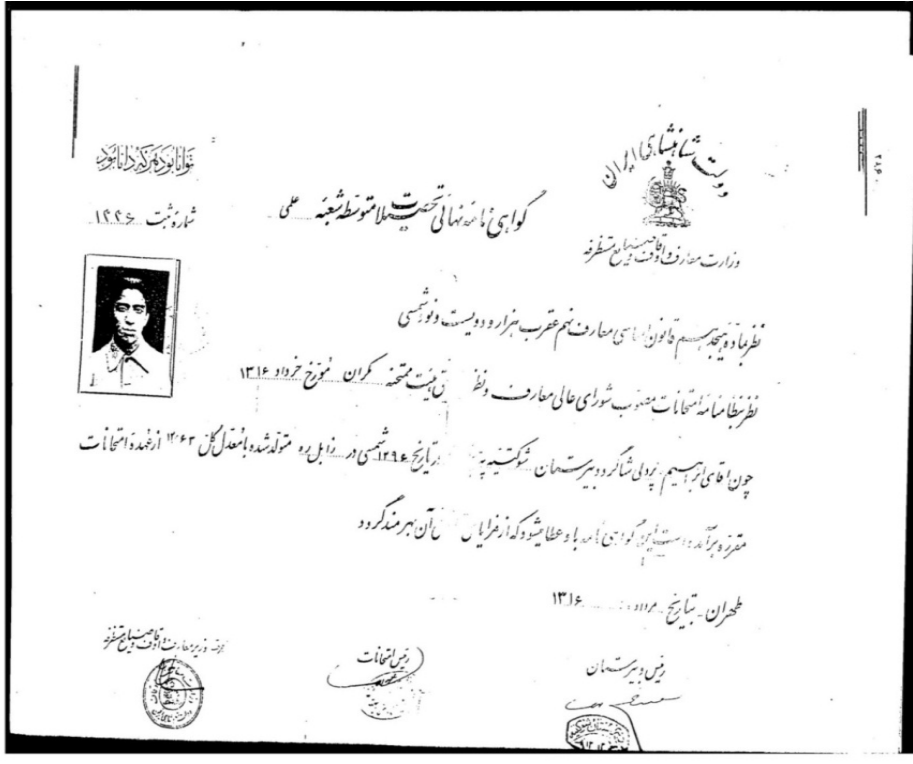 دولت شاهنشاهی ایران
وزارت معارف و اوقاف و صنایع مستظرفه
توانا بود هر که دانا بود
شماره ثبت ۱۴۴۶
گواهی نامه نهائی تحصیلات متوسطه شعبه علمی
نظر بماده هیجدهم قانون اساسی معارف نهم عقرب هزار و دویست و نود شمسی
نظر بنظامنامه امتحانات مصوب شورای عالی معارف و نظر هیئت ممتحنه مورخ خرداد ۱۳۱۶
چون آقای ابراهیم پردلی شاگرد دبیرستان شوکتیه در تاریخ ۱۲۹۶ شمسی در زابل متولد شده با معدل کل از عهده امتحانات
مقرره برآمده گواهی نامه باو عطا میشود که از مزایای آن بهره مند گردد
طهران - بتاریخ مرداد ۱۳۱۶
رئیس دبیرستان
رئیس امتحانات
وزیر معارف و اوقاف و صنایع مستظرفه